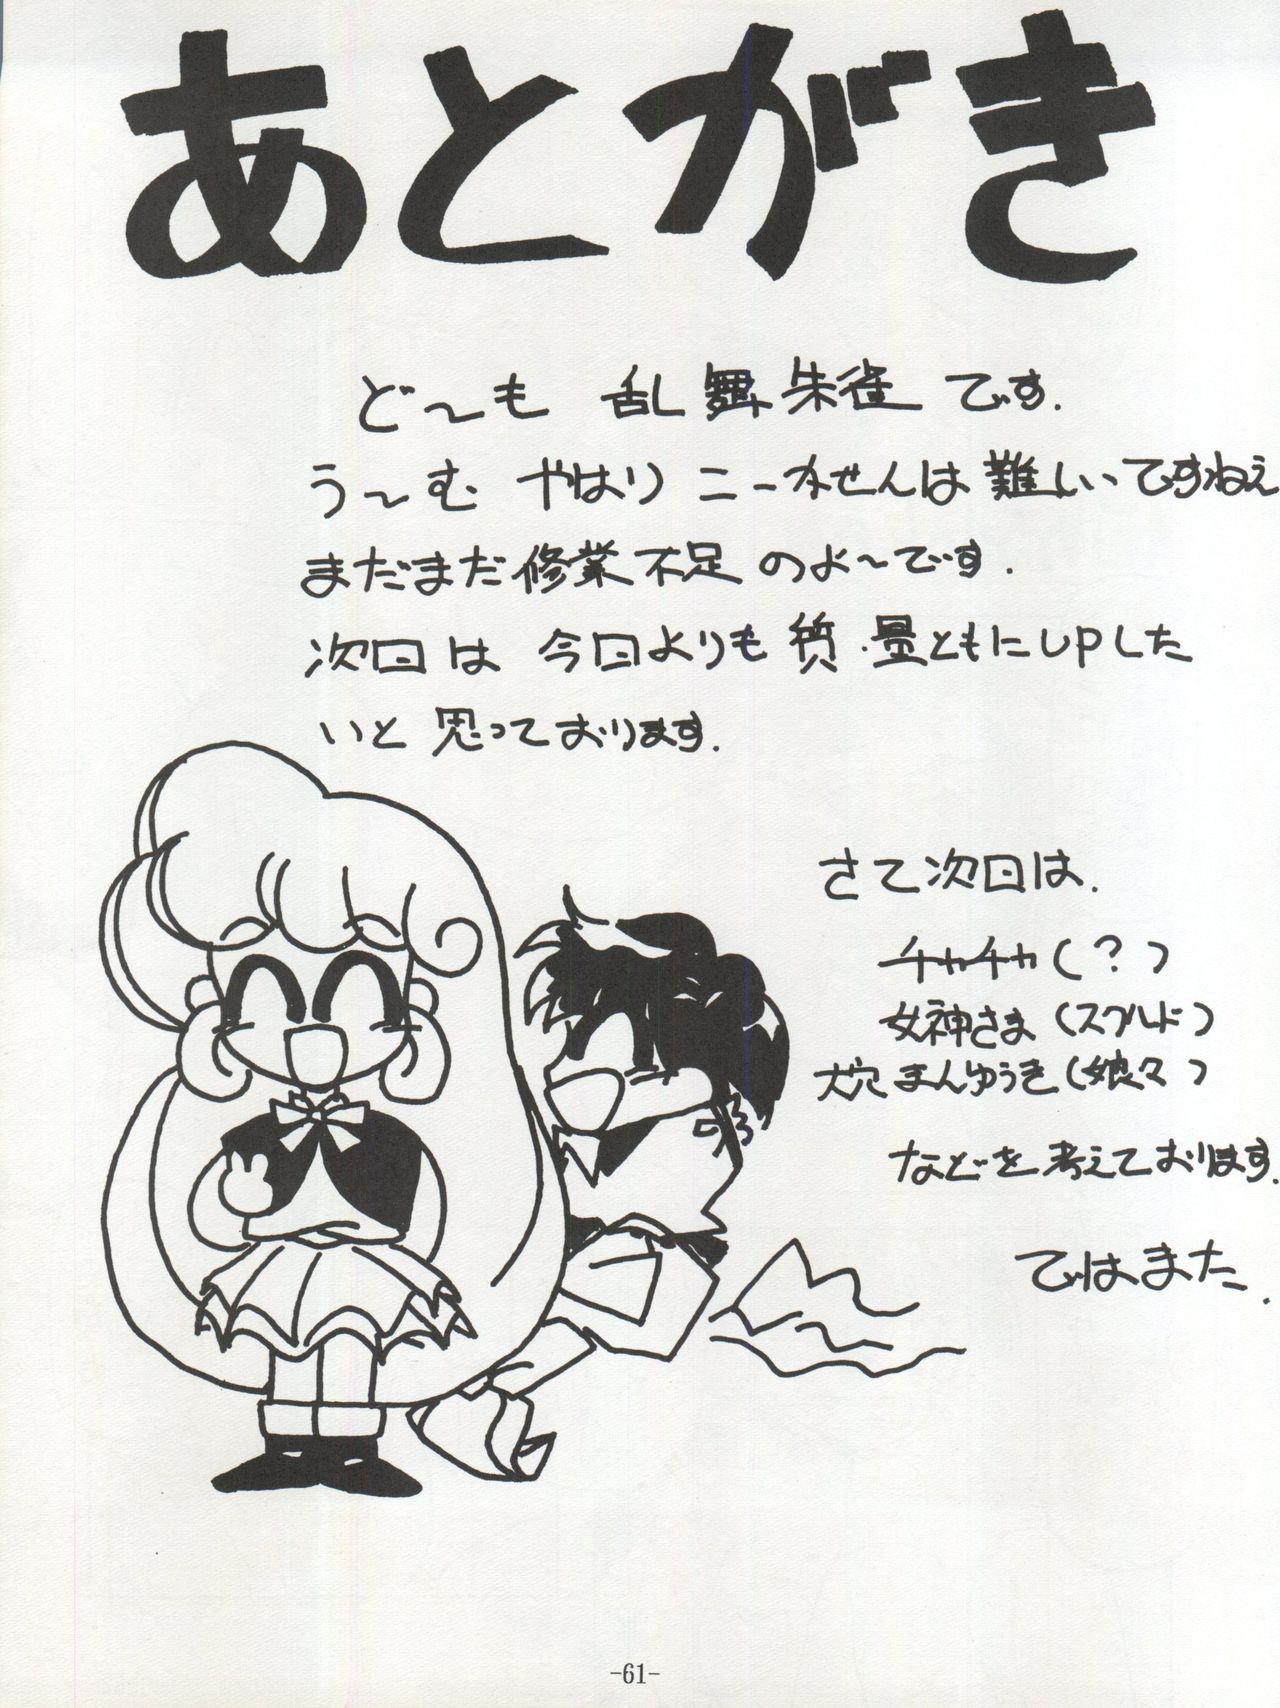 あとがき
ど〜も 乱舞朱雀です.
う〜む やはり ニーかせんは難しいですねえ
まだまだ修業不足のよ〜です.
次回は 今回よりも質・量ともにUPした
いと思っております.
さて次回は.
チャチャ(?)
女神さま(スクルド)
大穴 まんゆうき(娘々)
などを考えております.
ではまた.
-61-